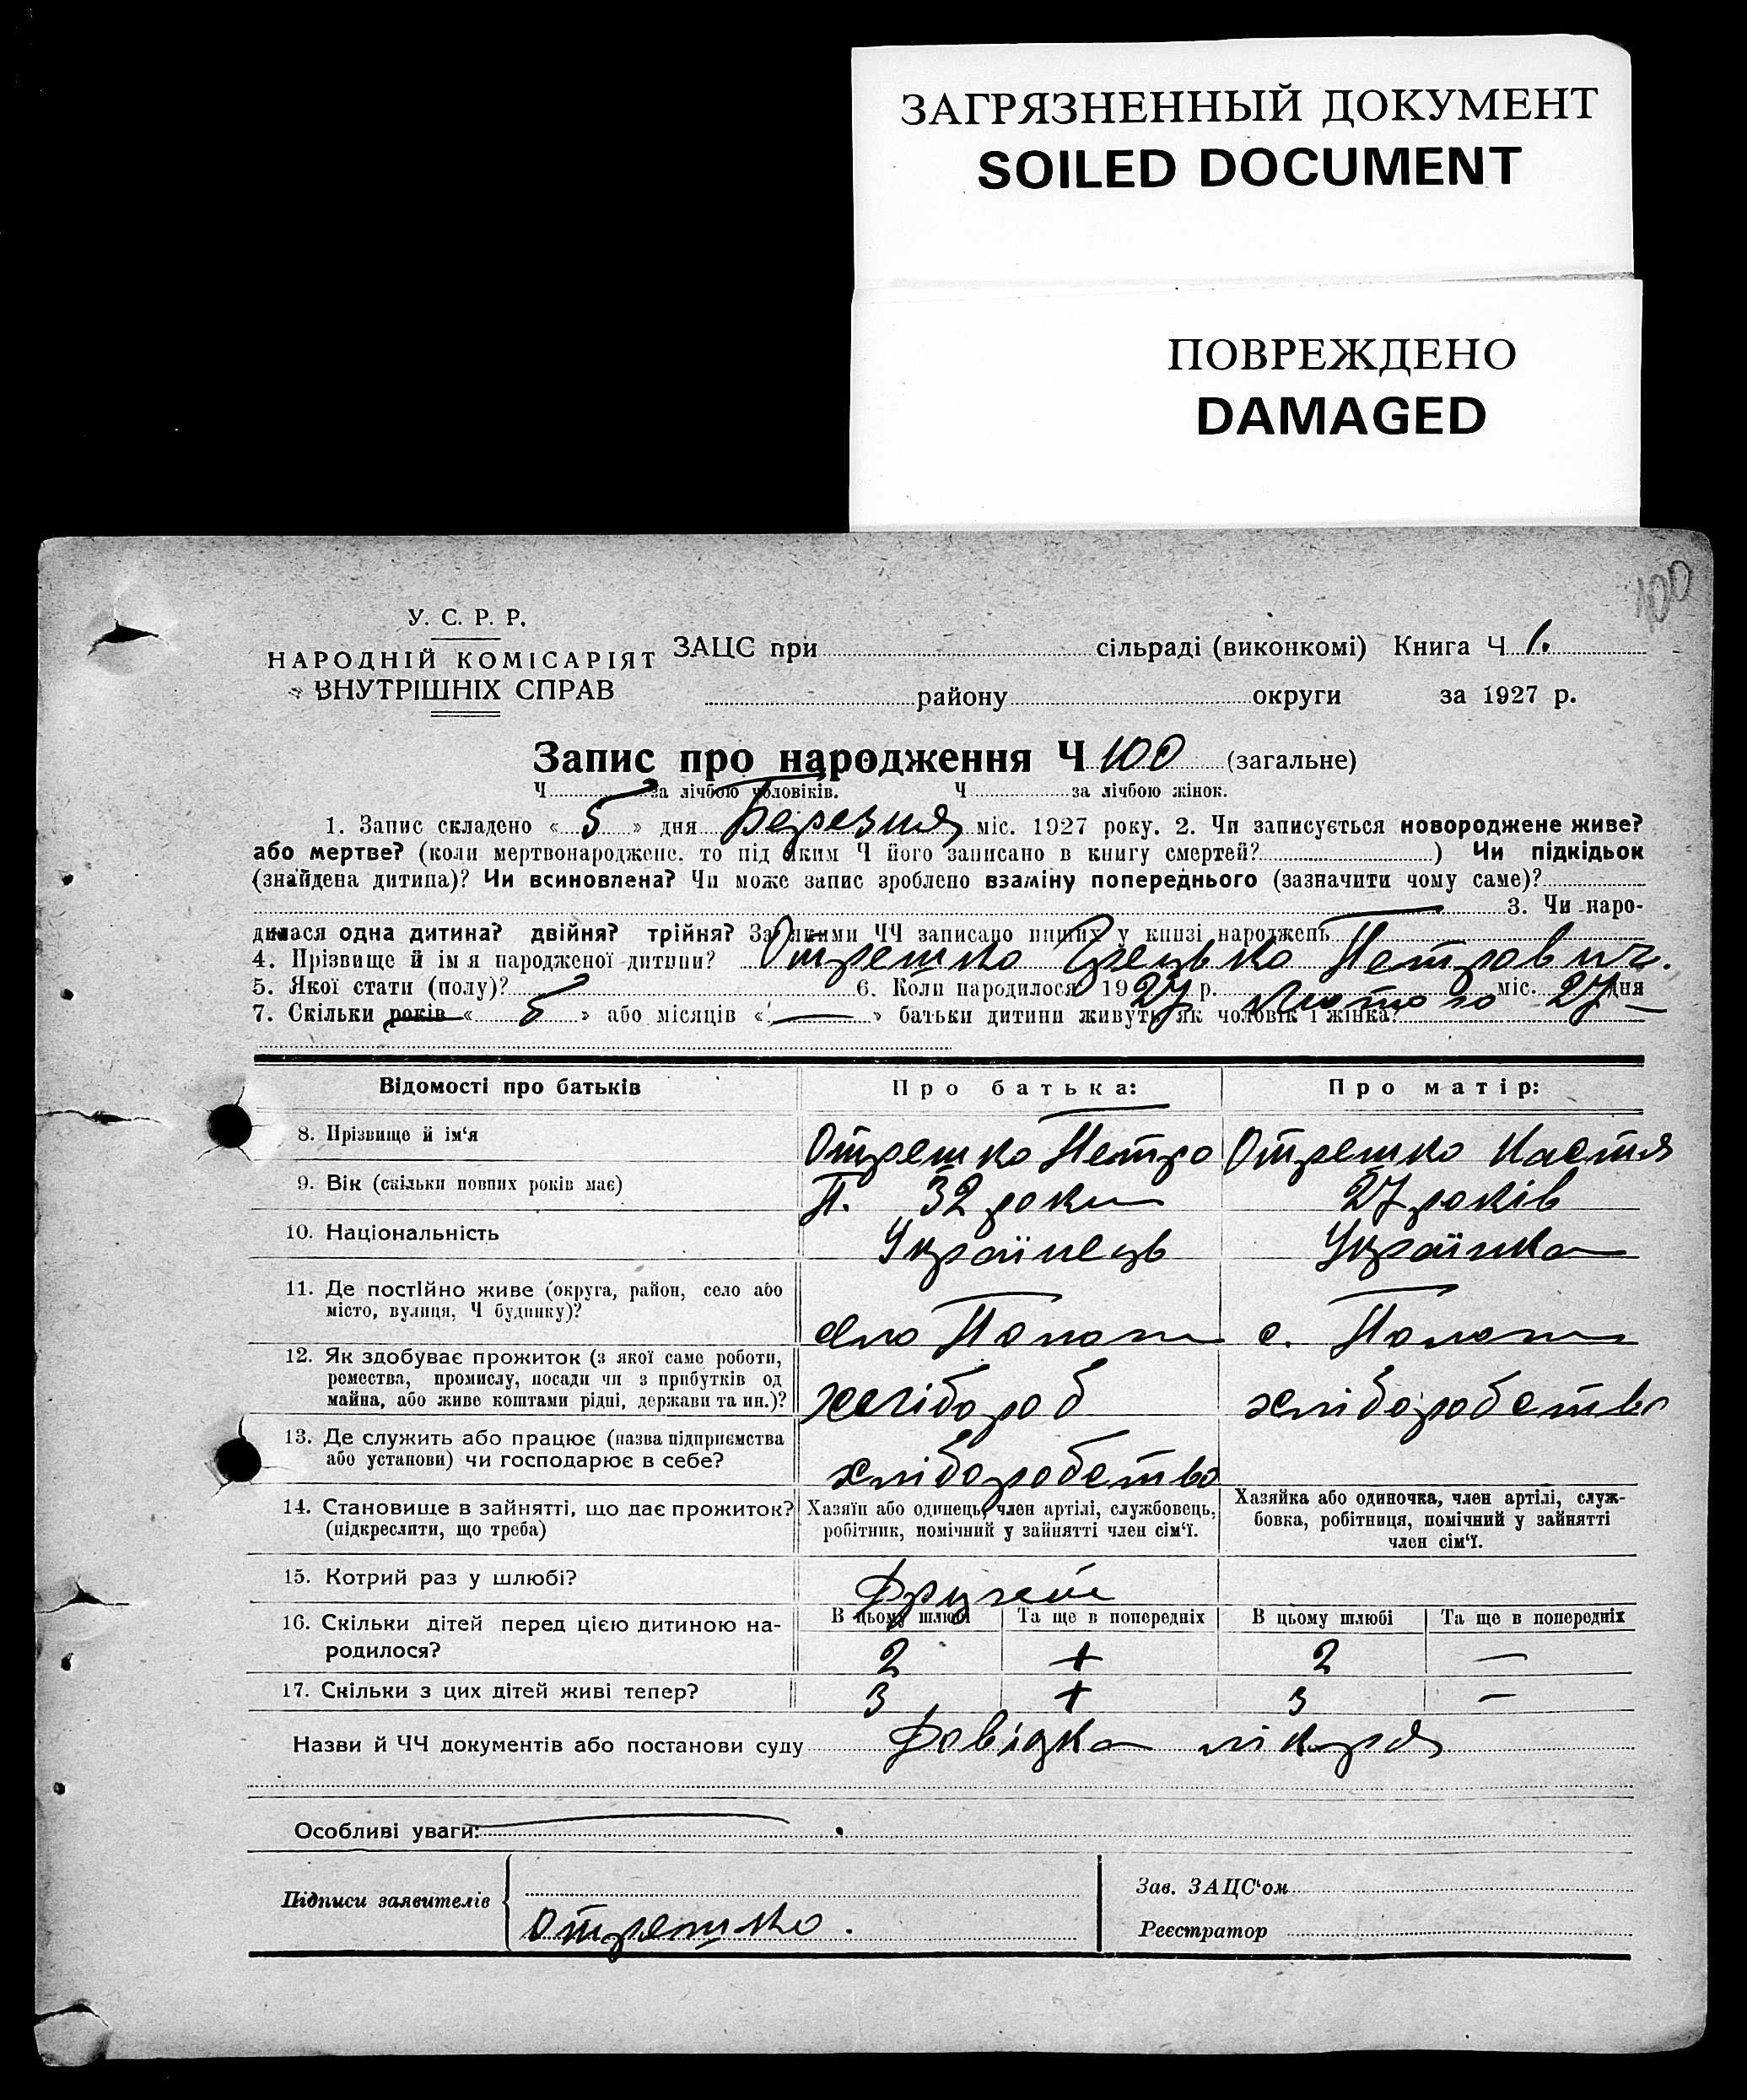 ЗАГРЯЗНЕННЫЙ ДОКУМЕНТ
SOILED DOCUMENT
ПОВРЕЖДЕНО
DAMAGED
100
У. С. Р. Р.
НАРОДНІЙ КОМІСАРІЯТ
ВНУТРІШНІХ СПРАВ
ЗАЦС при сільраді (виконкомі) Книга Ч 1.
району округи за 1927 р.
Запис про народження Ч 100 (загальне)
Ч за лічбою чоловіків. Ч за лічбою жінок.
1. Запис складено « 5 » дня Березня міс. 1927 року. 2. Чи записується новороджене живе?
або мертве? (коли мертвонароджене, то під яким Ч його записано в книгу смертей? ) Чи підкідьок
(знайдена дитина)? Чи всиновлена? Чи може запис зроблено взаміну попереднього (зазначити чому саме)?
3. Чи наро-
дилася одна дитина? двійня? трійня? За якими ЧЧ записано инших у книзі народжень
4. Прізвище й ім я народженої дитини? Отрешко Грецько Петрович.
5. Якої стати (полу)? 6. Коли народилося 1927 р. Лютого міс. 27 дня
7. Скільки років « 5 » або місяців « — » батьки дитини живуть як чоловік і жінка?
Відомості про батьків Про батька: Про матір:
8. Прізвище й ім‘я Отрешко Петро Отрешко Настя
9. Вік (скільки повних років має) П. 32 роки 27 років
10. Національність Українець Українка
11. Де постійно живе (округа, район, село або
місто, вулиця, Ч будинку)? село с.
12. Як здобуває прожиток (з якої саме роботи,
ремества, промислу, посади чи з прибутків од
майна, або живе коштами рідні, держави та ин.)? хлібороб хліборобство
13. Де служить або працює (назва підприємства
або установи) чи господарює в себе? хліборобство
14. Становище в зайнятті, що дає прожиток?
(підкреслити, що треба)
Хазяїн або одинець, член артілі, службовець,
робітник, помічний у зайнятті член сім‘ї.
Хазяйка або одиночка, член артілі, служ-
бовка, робітниця, помічний у зайнятті
член сім‘ї.
15. Котрий раз у шлюбі?
В цьому шлюбі Та ще в попередніх В цьому шлюбі Та ще в попередніх
16. Скільки дітей перед цією дитиною на-
родилося? 2 + 2 —
17. Скільки з цих дітей живі тепер? 3 + 3 —
Назви й ЧЧ документів або постанови суду Довідка лікаря
Особливі уваги:
Підписи заявителів
Отрешко.
Зав. ЗАЦС‘ом
Реєстратор